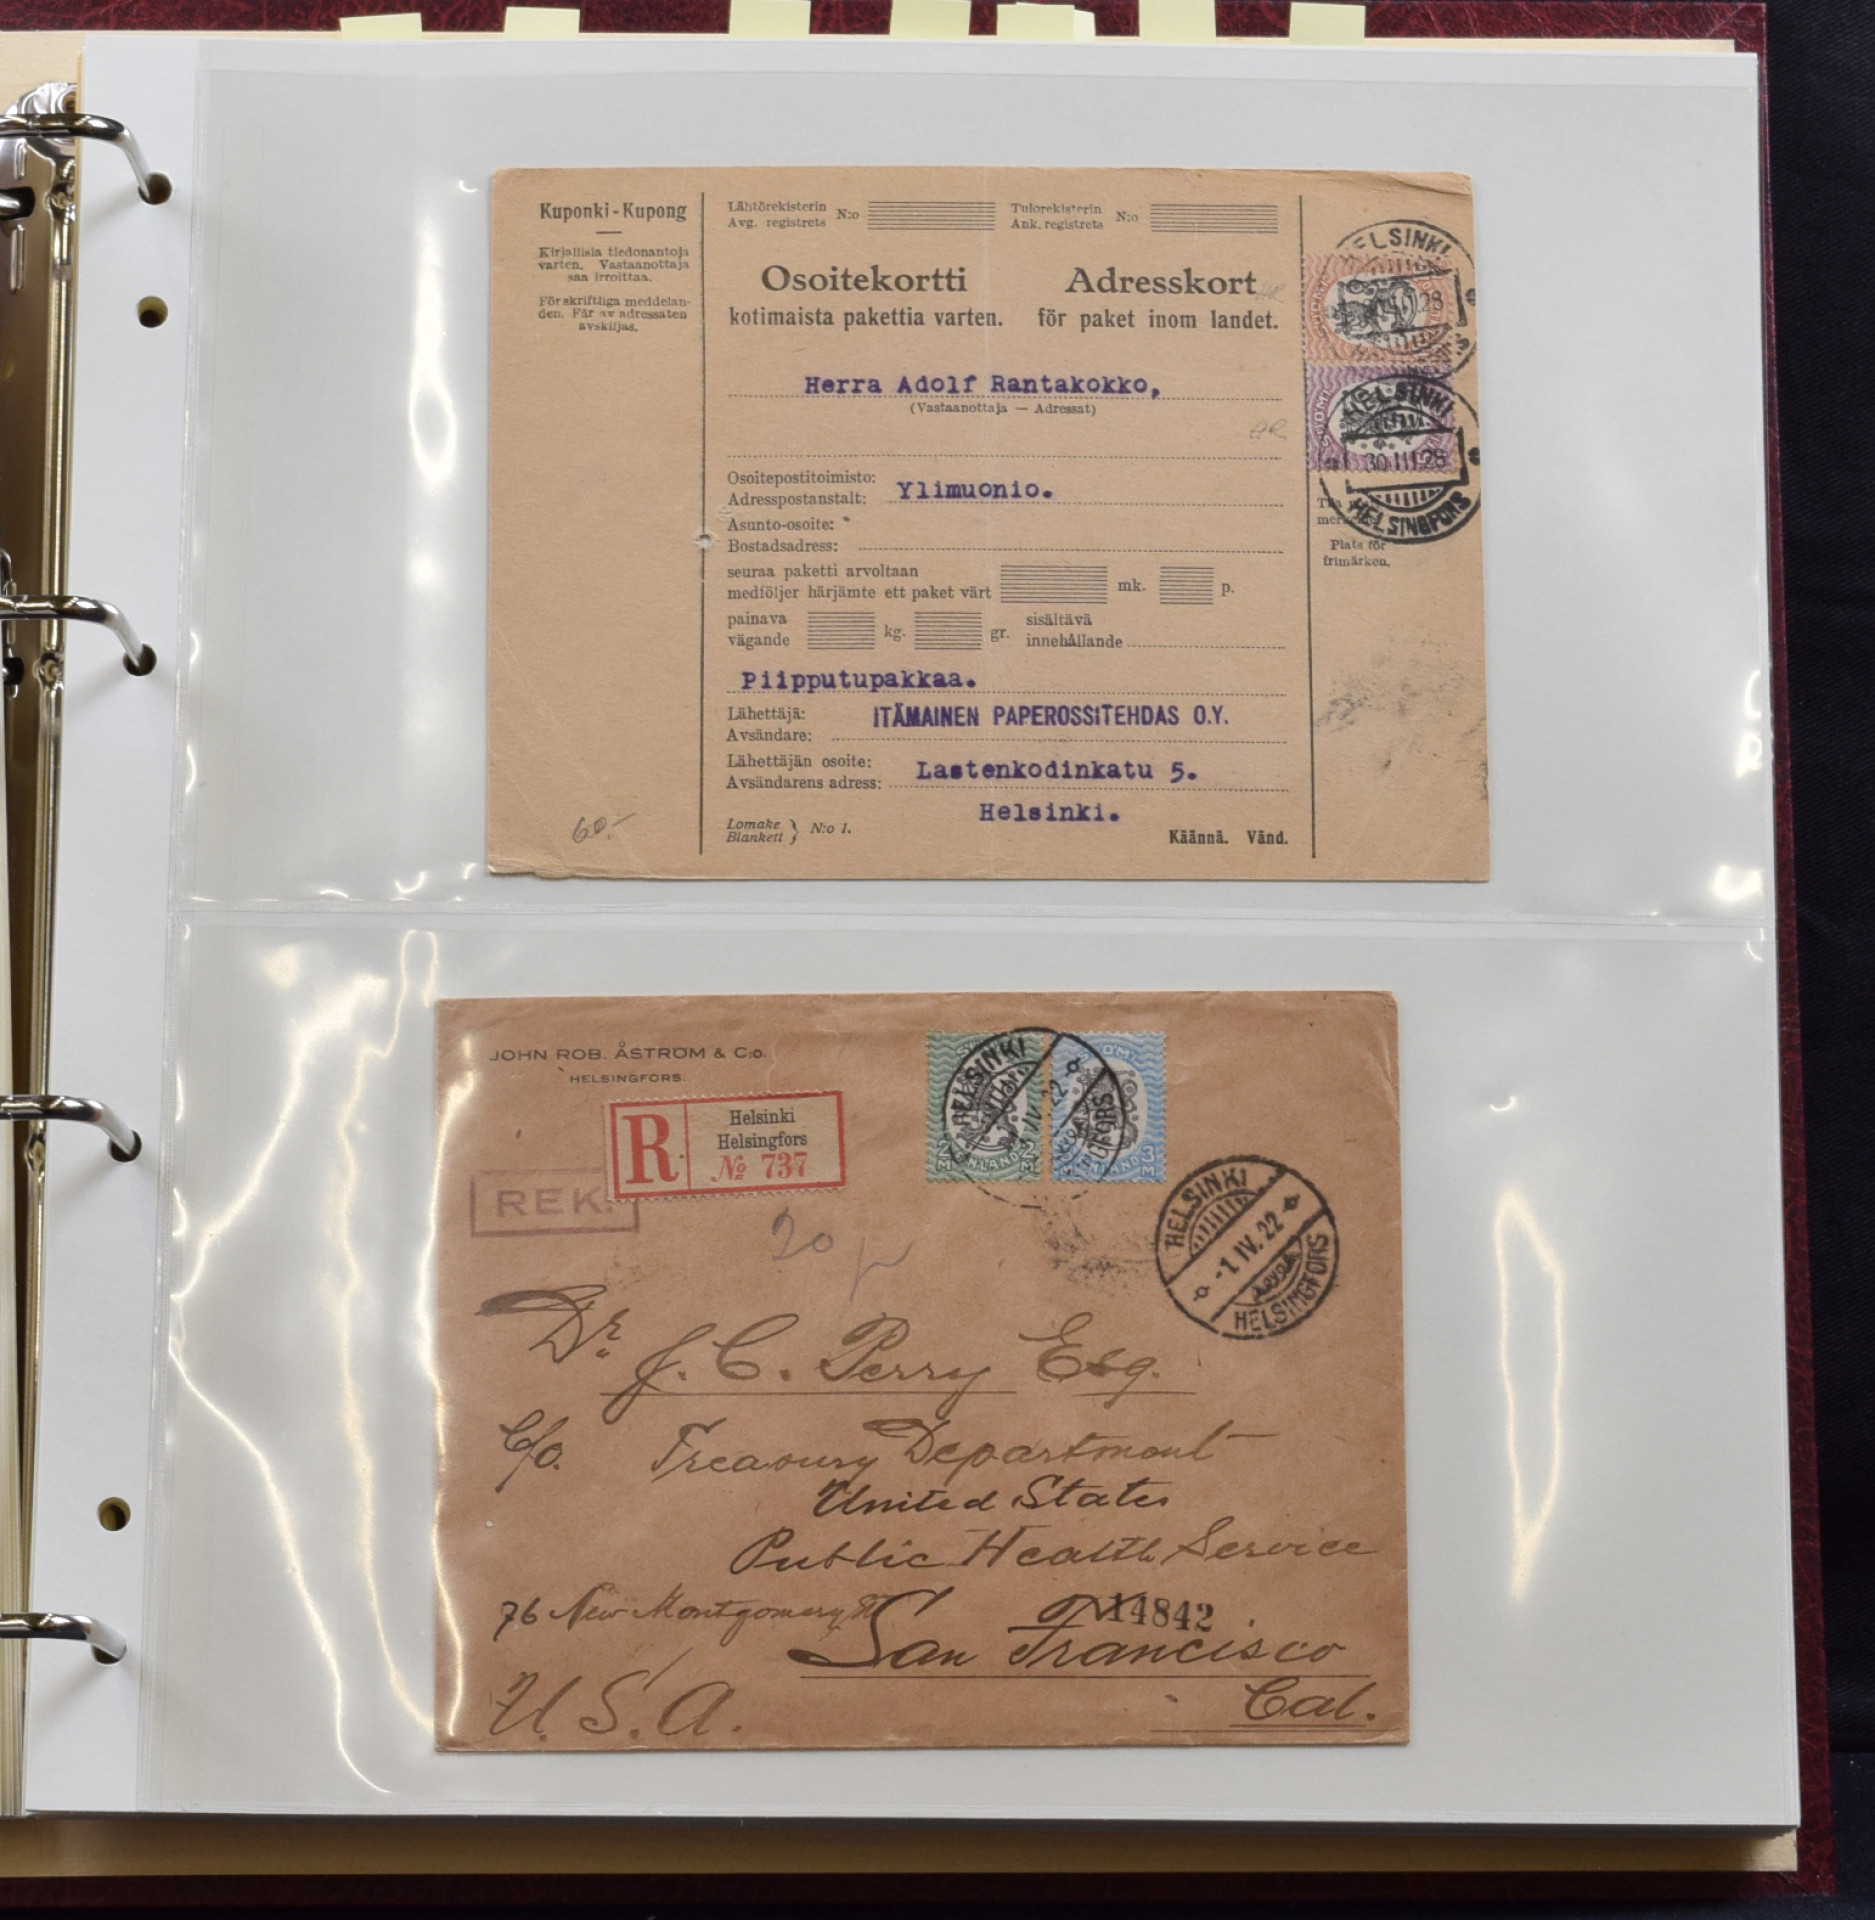 Kuponki - Kupong
Kirjallisia tiedonantoja
varten. Vastaanottaja
saa irroittaa.
För skriftliga meddelan-
den. Får av adressaten
avskiljas.
Lähtörekisterin
Avg. registrets N:o
Tulorekisterin
Ank. registrets N:o
Osoitekortti
kotimaista pakettia varten.
Adresskort
för paket inom landet.
Herra Adolf Rantakokko,
(Vastaanottaja — Adressat)
Osoitepostitoimisto:
Adresspostanstalt: Ylimuonio.
Asunto-osoite:
Bostadsadress:
seuraa paketti arvoltaan
medföljer härjämte ett paket värt mk. p.
painava
vägande kg. gr.
sisältävä
innehållande
Piipputupakkaa.
Lähettäjä:
Avsändare: ITÄMAINEN PAPEROSSITEHDAS O.Y.
Lähettäjän osoite:
Avsändarens adress: Lastenkodinkatu 5.
Helsinki.
Lomake
Blankett } N:o 1.
Käännä. Vänd.
60.-
HELSINKI
HELSINKI
30 III 28
HELSINGFORS
Plats för
frimärken.
JOHN ROB. ÅSTRÖM & C:o.
HELSINGFORS.
R
Helsinki
Helsingfors
№ 737
REK.
HELSINKI
2 M 2 M
3 M
HELSINKI
-1. IV. 22
HELSINGFORS
20
Dr. J. C. Perry Esq.
C/o. Treasury Department
United States
Public Health Service
76 New Montgomery St
14842
San Francisco
Cal.
U. S. A.